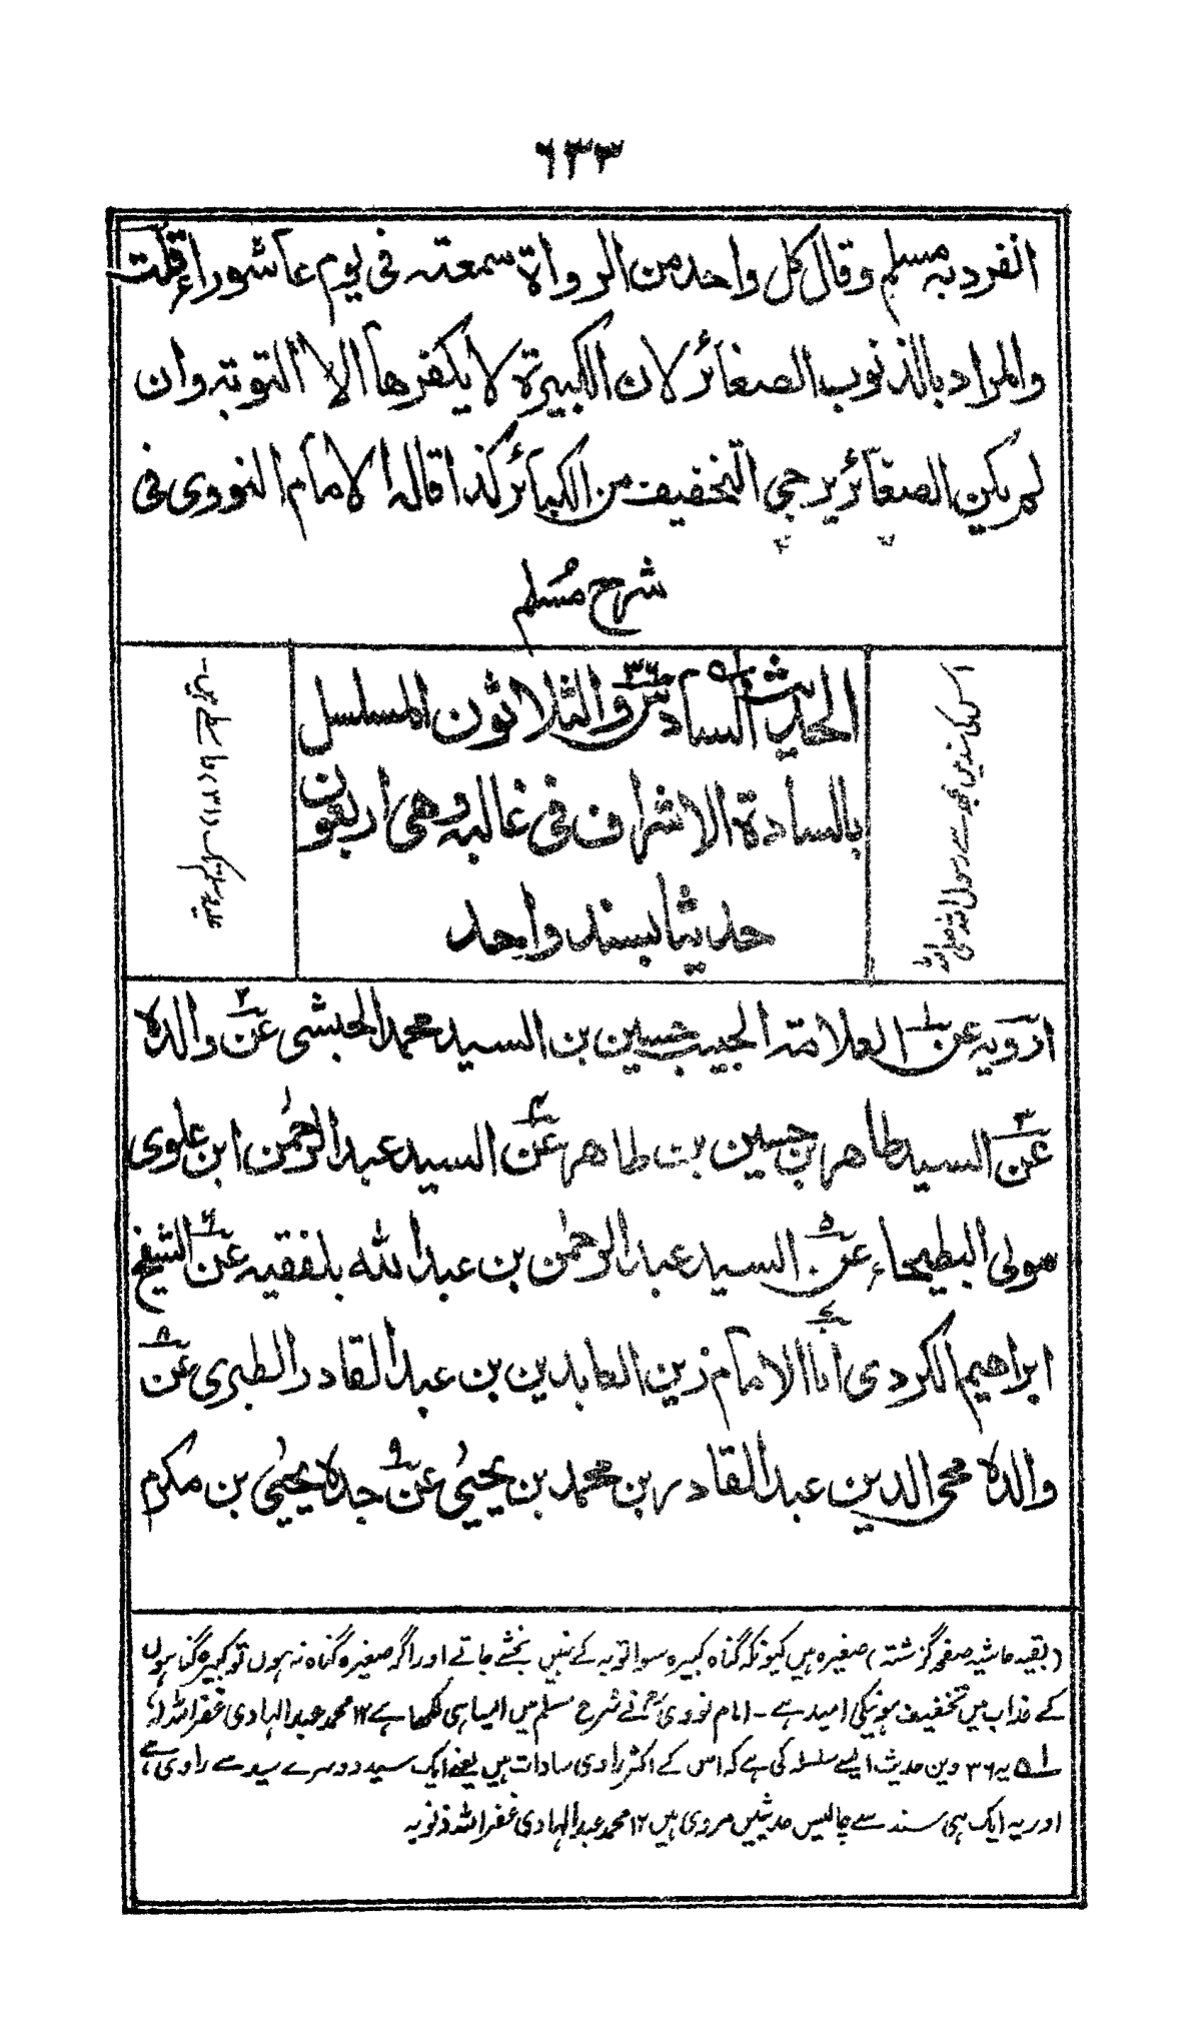 ٦٣٣
انفرد به مسلم وقال كل واحد من الرواة سمعته فى يوم عاشوراء قلت
والمراد بالذنوب الصغائر لان الكبيرة لا يكفرها الا التوبة وان
لم يكن الصغائر يرجى التخفيف من الكبائر كذا قاله الامام النووى فى
شرح مُسلم
الحديث السادس والثلاثون المسلسل
بالسادة الاشراف فى غالبه وهى اربعون
حديثا بسند واحد
اس کی سند میں مجھ سے رسول اللہ صلی اللہ
علیہ وسلم تک (٣١) واسطے ہیں۔
ارويه عن العلامة الحبيب حسين بن السيد محمد الحبشى عن والده
عن السيد طاهر بن حسين بن طاهر عن السيد عبد الرحمٰن ابن علوى
مولى البطيحاء عن السيد عبد الرحمٰن بن عبد الله بلفقيه عن الشيخ
ابراهيم الكردى انا الامام زين العابدين بن عبد القادر الطبرى عن
والده محى الدين عبد القادر بن محمد بن يحيىٰ عن جده يحيىٰ بن مكرم
(بقیہ حاشیہ صفحہ گزشتہ) صغیرہ ہیں کیونکہ گناہ کبیرہ سوا توبہ کے نہیں بخشے جاتے اور اگر صغیرہ گناہ نہ ہوں تو کبیرہ گناہوں
کے عذاب میں تخفیف ہونیکی امید ہے ۔ امام نووی نے شرح مسلم میں ایسا ہی لکھا ہے ١٢ محمد عبد الہادی غفر اللہ لہ
یہ ٣٦ وین حدیث ایسے سلسلہ کی ہے کہ اس کے اکثر راوی سادات ہیں یعنے ایک سید دوسرے سید سے راوی ہے
اور یہ ایک ہی سند سے چالیس حدیثیں مروی ہیں ١٢ محمد عبد الہادی غفر اللہ ذنوبہ